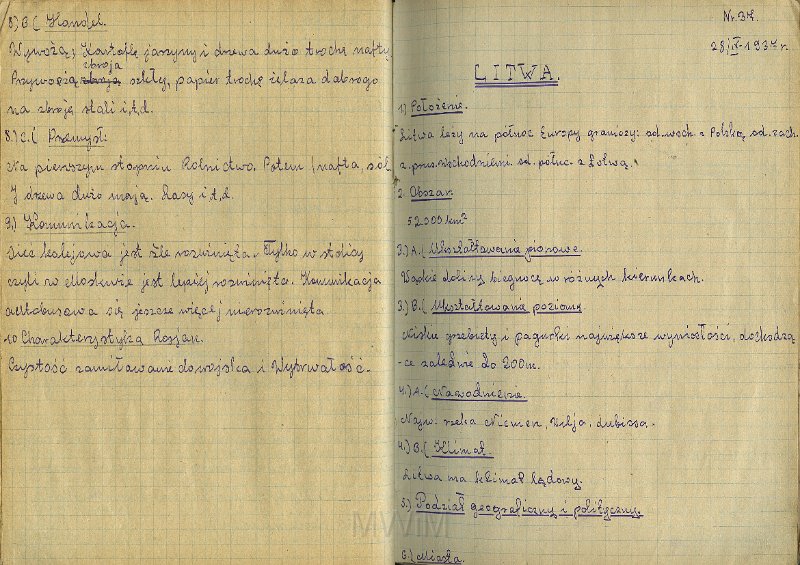 8) B.( Handel.
Wywożą; Kartofle jarzyny i drzewa dużo trochę nafty
zboja
Przywożą szkły, papier trochę żelaza dobrego
na zbroję stali i.t.d.
8.) C.( Przemysł:
Na pierwszym stopniu Rolnictwo. Potem (nafta, sól
I drzewa dużo mają. Rasy i.t.d.
9.) Komunikacja.
Siec kolejowa jest źle rozwinięta. Tylko w stolicy
czyli w Moskwie jest lepiéj rozwinięta. Komunikacja
autobusowa się jeszcze więcej nierozwinięta
10 Charakterystyka Rosjan.
Czystość zamiłowanie do wojska i Wytrwałość.
Nr. 37.
28/IX-1937 r.
LITWA.
1) Położenie.
Litwa leży na północ Europy graniczy: od. wsch. z Polską od. zach.
z. prus. Wschodniemi. od. połnc. z Łotwą.
2. Obszar.
52.000 km²
3.) A.( Ukształtowanie pionowe.
Wąskie doliny biegnące w różnych kierunkach.
3.) B.( Ukształtowanie poziome.
Niskie grzebiety i pagurki największe wyniosłości, dochodzą
-ce zaledwie do 200 m.
4.) A.( Nawodnienie.
Najw. rzeka Niemen, Wilja, dubissa.
4.) B.( Klimat.
Litwa ma klimat lądowy.
5.) Podział geograficzny i polityczny.
6.) Miasta.
MWIM